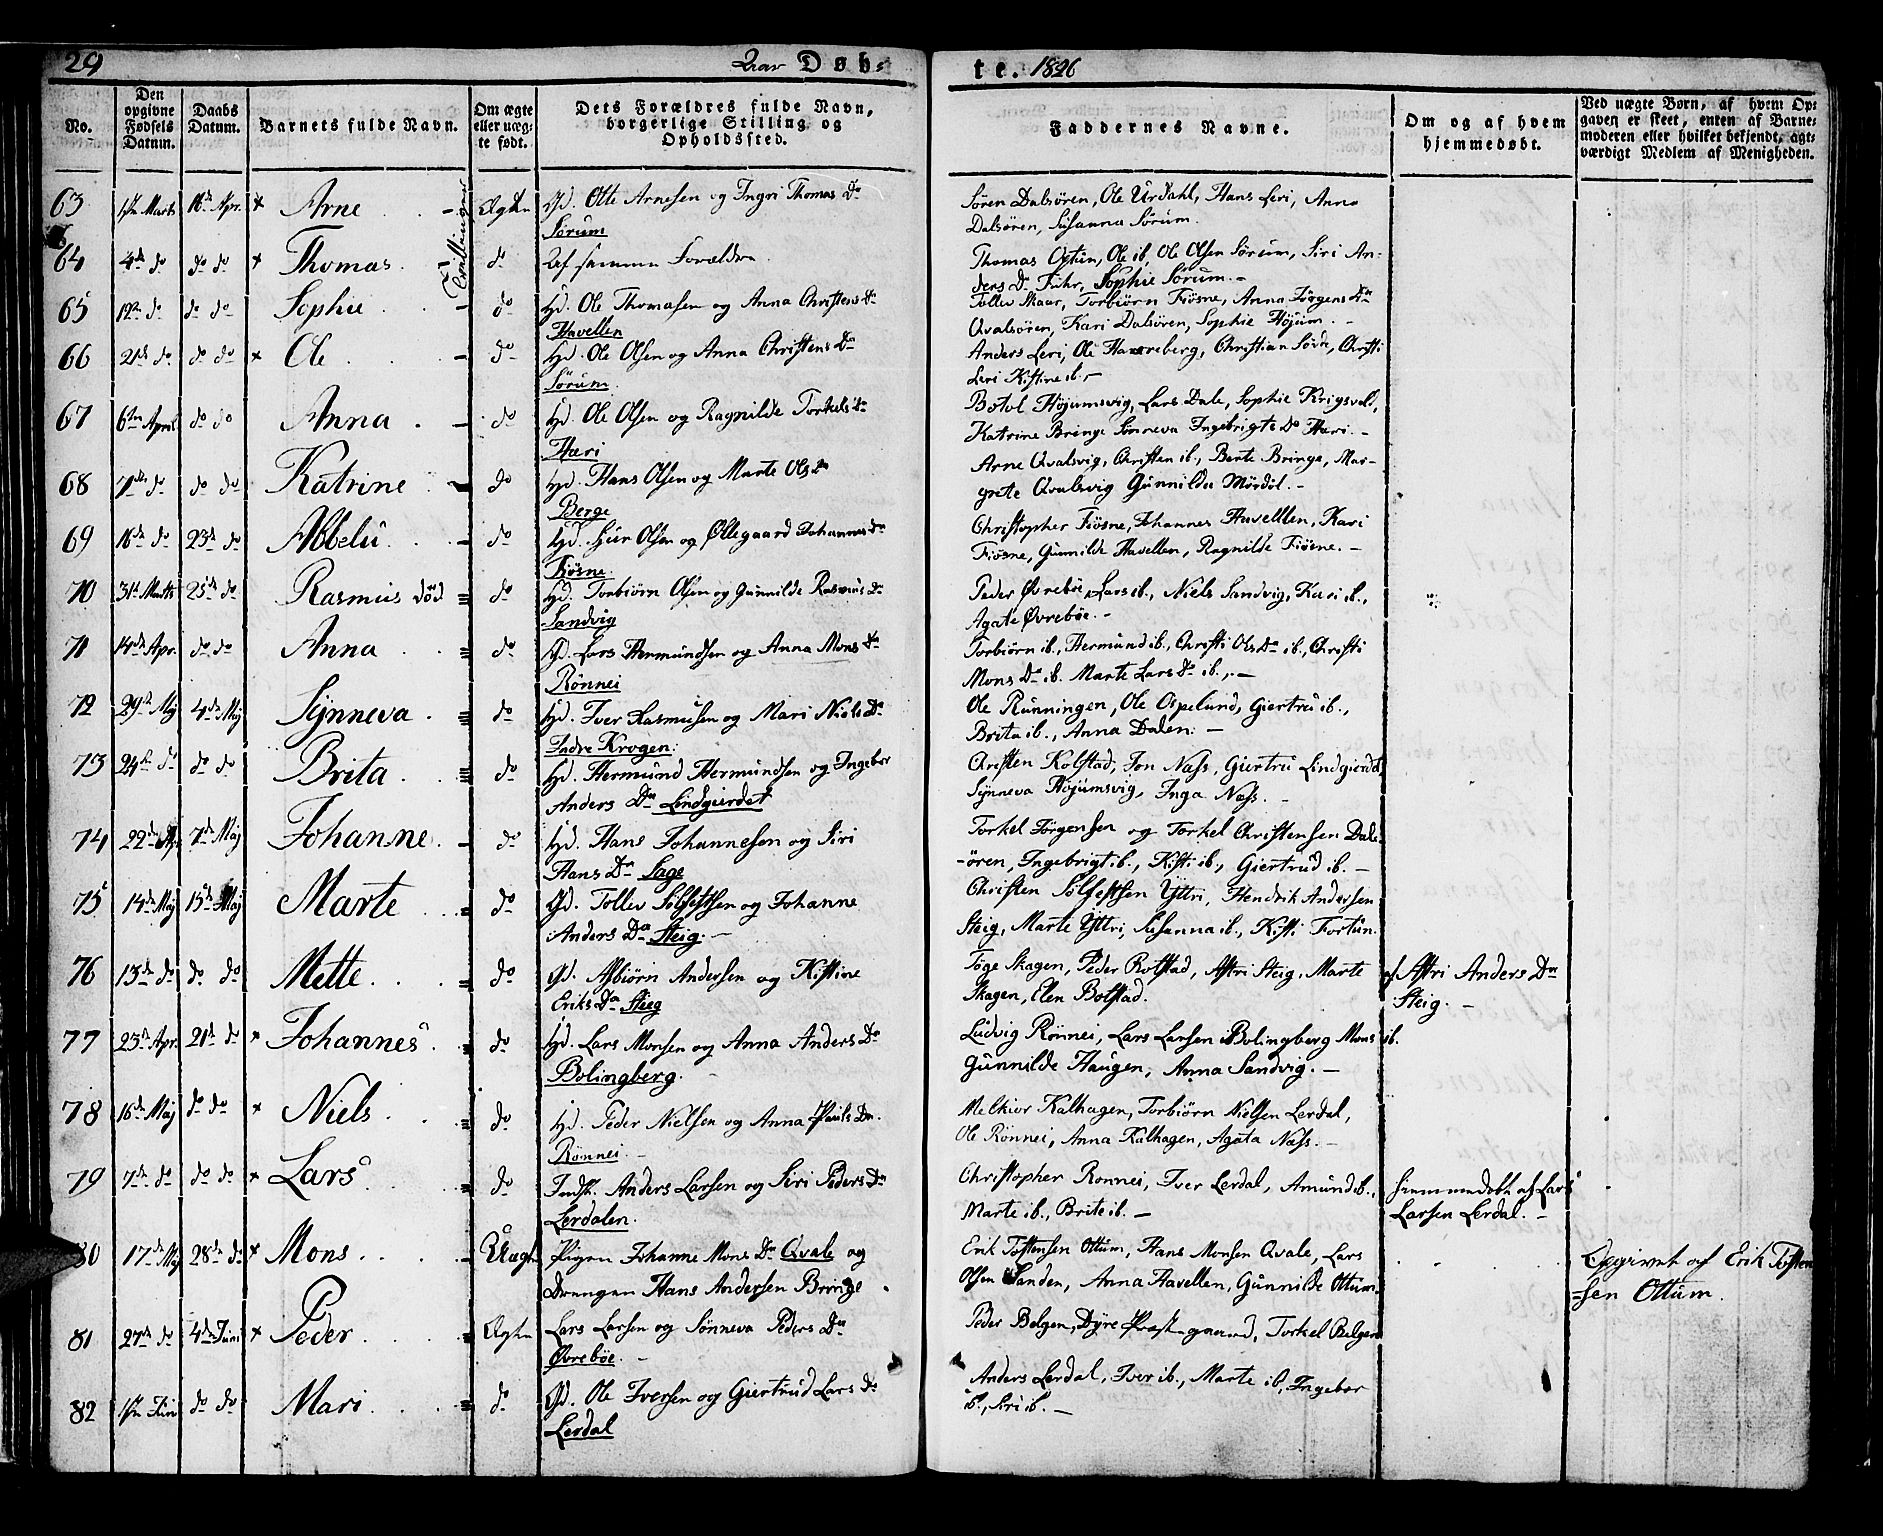 29 Døb- te. 1826
No.
Den opgivne Fødsels Datum.
Daabs Datum.
Barnets fulde Navn.
Om ægte eller uæg- te født.
Dets Forældres fulde Navn, borgerlige Stilling og Opholdssted.
Faddernes Navne.
Om og af hvem hjemmedøbt.
Ved uægte Børn, af hvem Op- gaven er skeet, enten af Barne- moderen eller hvilket bekjendt, agt- værdigt Medlem af Menigheden.
63 1ste Marts 16de Apr. × Arne - Ægte Gd. Otte Arnesen og Ingri Thomas Dr Sørum
Søren Dalsören, Ole Urdahl, Hans Leri, Anna
Dalsören, Susanna Sørum.
Tvillinger
64 4de do do do × Thomas. do Af samme Forældre.
Thomas Østun, Ole ib, Ole Olsen Sørum, Siri An-
ders Dr Fuhr, Sophie Sørum. -
65 12te do do do Sophie . . - do Hd. Ole Thomasen og Anna Christens Dr
Havellen
Tollev Skaar, Torbiörn Fiösne, Anna Jörgens Dr
Qvalsören, Kari Dalsören, Sophie Höjum. -
66 21de do do do × Ole . - do Hd. Ole Olsen og Anna Christens Dr
Sörum.
Anders Leri, Ole Hareberg, Christian Söve, Christi
Leri Kistine ib. -
67 6te April do do Anna . - do Hd. Ole Olsen og Ragnilde Torkels Dr
Hæri
Botol Höjumsvig, Lars Dale, Sophie Krigsvold,
Katrine Bringe Sönneva Ingebrigts Dr Hæri. -
68 7de do do do Katrine . - do Hd. Hans Olsen og Marte Ols Dr
Berge
Arne Qvalsvig, Christen ib., Berte Bringe, Mar-
grete Qvalsvig Gunnilde Mördöl. -
69 16de do 23de do Abbelu . - do Hd. Siur Olsen og Øllegaard Johannes Dr
Fiösne.
Christopher Fiösne, Johannes Havelllen, Kari
Fiösne, Gunnilde Havellen, Ragnilde Fiösne. -
70 31te Marts 25de do Rasmus död = do Hd. Torbiörn Olsen og Gunnilde Rasmus Dr
Sandvig
Peder Øvreböe, Lars ib., Niels Sandvig, Kari ib.,
Agate Øvreböe. -
71 14de Apr. do do Anna . . = do Gd. Lars Hermundsen og Anna Mons Dr
Rönnei
Torbiörn ib., Hermund ib., Christi Ols Dr ib., Christi
Mons Dr ib. Marte Lars Dr ib., -
72 29de Maj 4de Maj Synneva . = do Hd. Iver Rasmusen og Mari Niels Dr
Indre Krogen.
Ole Runningen, Ole Ospelund, Giertru ib.,
Brita ib., Anna Dalen. -
73 24de do do do Brita . . = do Hd. Hermund Hermundsen og Ingebor
Anders Dr Lindgierdet
Christen Kolstad, Jon Næss, Giertru Lindgierdet
Synneva Höjumsvig, Inga Næss. -
74 22de Apr. 7de Maj Johanne . - do Hd. Hans Johannesen og Siri
Hans Dr Lage
Torkel Jörgensen og Torkel Christensen Dals-
-ören, Ingebrigt ib., Kisti ib., Giertrud ib. -
75 14de Maj 15de Maj Marte . . = do Gd. Tollev Solfestsen og Johanne
Anders Dr Steig. -
Christen Solfestsen Yttri, Hendrik Andersen
Steig, Marte Yttri, Susanna ib., Kisti Fortun.
76 13de do do do Mette . . = do Gd. Asbiörn Andersen og Kistine
Eriks Dr Steeg
Töge Skagen, Peder Botstad, Astri Steig, Marte
Skagen, Elen Bolstad.
af Astri Anders Dr
Steig. -
77 23de Apr. 21de do × Johannes . = do Hd. Lars Monsen og Anna Anders Dr
Bolingberg.
Ludvig Rönnei, Lars Larsen Bolingberg Mons ib.
Gunnilde Haugen, Anna Sandvig. -
78 16de Maj do do × Niels . . = do Hd. Peder Nielsen og Anna Pauls Dr.
Rönnei. -
Melkior Kalhagen, Torbiörn Nielsen Lerdal,
Ole Rönnei, Anna Kalhagen, Agata Næss. -
79 7de do do do × Lars . . = do Indst. Anders Larsen og Siri Peders Dr
Lerdalen.
Christopher Ronnei, Iver Lerdal, Amund ib.,
Marte ib., Brite ib. -
hiemmedöbt af Lars
Larsen Lerdal. -
80 17de Maj 28de do × Mons . . = Uægte Pigen Johanne Mons Dr Qvale og
Drengen Hans Andersen Bringe
Erik Tostensen Ottum, Hans Monsen Qvale, Lars
Olsen Sanden, Anna Havellen, Gunnilde Ottum.
Opgivet af Erik Tosten
-sen Ottum.
81 27de do 4de Juni × Peder . . = Ægte Lars Larsen og Sönneva Peders Dr
Øvreböe. -
Peder Bolgen, Dyre Præstegaard, Torkel Bolgen
82 1ste Juni do do Mari . . = do Gd. Ole Iversen og Giertrud Lars Dr
Lerdal
Anders Lerdal, Iver ib., Marte ib, Ingebor
ib., Siri ib. -